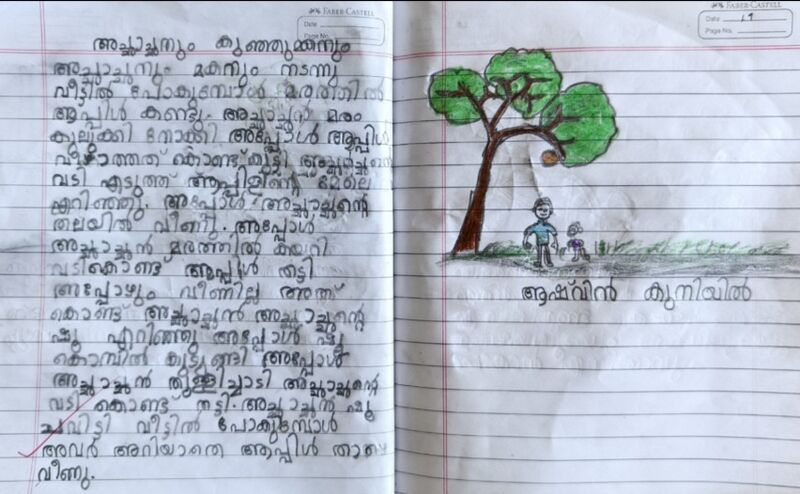 FABER-CASTELL
Date
Page No.
അച്ചാച്ചനും കുഞ്ഞുമോനും
അച്ചാച്ചനും മകനും നടന്നു
വീട്ടിൽ പോകുമ്പോൾ മരത്തിൽ
ആപ്പിൾ കണ്ടു. അച്ചാച്ചൻ മരം
കുലുക്കി നോക്കി അപ്പോൾ ആപ്പിൾ
വീഴാത്തത് കൊണ്ട് കുട്ടി അച്ചാച്ചന്റെ
വടി എടുത്ത് ആപ്പിളിന്റെ മേലെ
എറിഞ്ഞു. അപ്പോൾ അച്ചാച്ചന്റെ
തലയിൽ വീണു. അപ്പോൾ
അച്ചാച്ചൻ മരത്തിൽ കയറി
വടികൊണ്ട് ആപ്പിൾ തട്ടി
അപ്പോഴും വീണില്ല അത്
കൊണ്ട് അച്ചാച്ചൻ അച്ചാച്ചന്റെ
ഷൂ എറിഞ്ഞു അപ്പോൾ ഷൂ
കൊമ്പിൽ കുടുങ്ങി അപ്പോൾ
അച്ചാച്ചൻ തുള്ളിച്ചാടി അച്ചാച്ചന്റെ
വടി കൊണ്ട് തട്ടി. അച്ചാച്ചൻ ഷൂ
ചവിട്ടി വീട്ടിൽ പോകുമ്പോൾ
അവർ അറിയാതെ ആപ്പിൾ താഴെ
വീണു.
FABER-CASTELL
Date
Page No.
ആഷ്‌വിൻ കുനിയിൽ